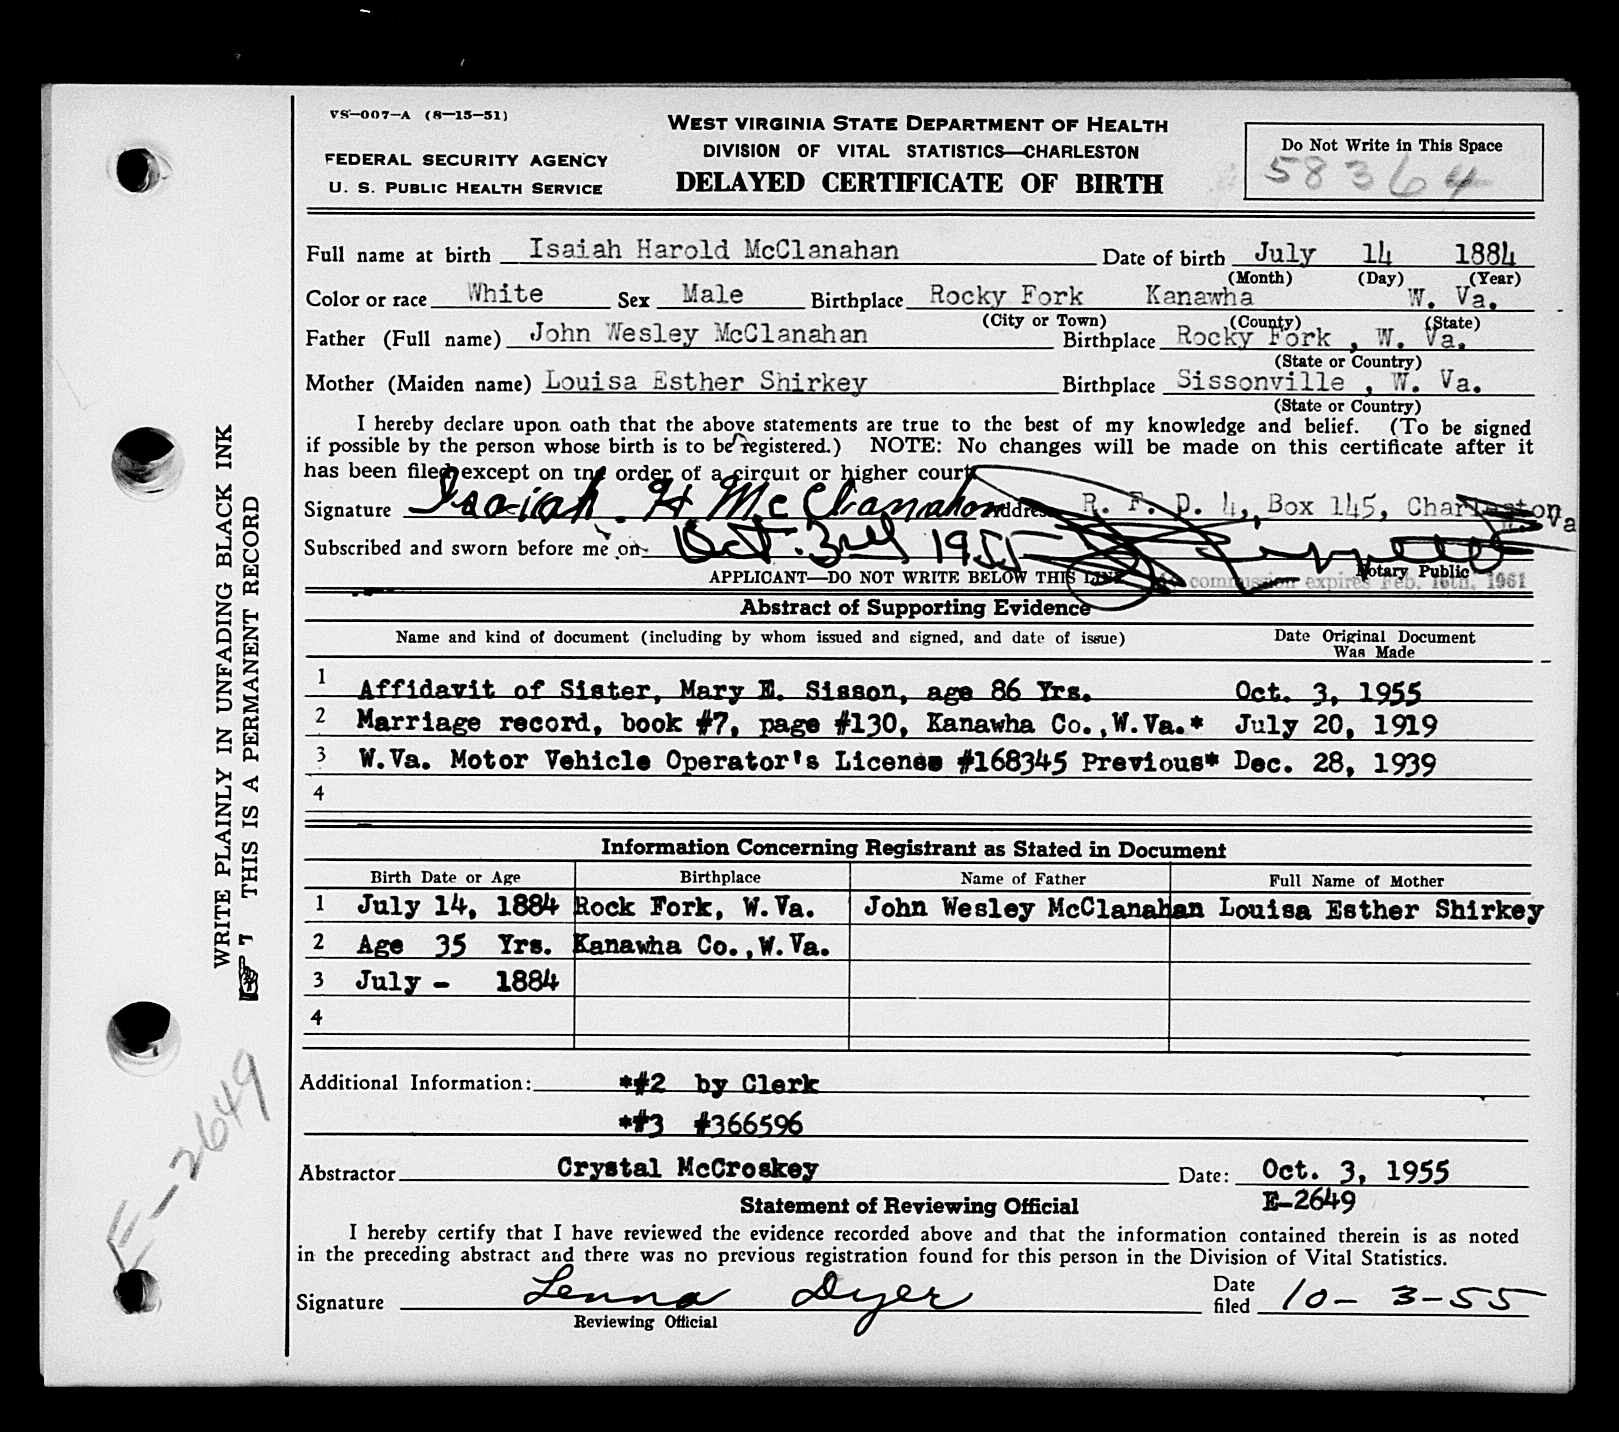 VS-007-A (8-15-51)
FEDERAL SECURITY AGENCY
U. S. PUBLIC HEALTH SERVICE
WEST VIRGINIA STATE DEPARTMENT OF HEALTH
DIVISION OF VITAL STATISTICS—CHARLESTON
DELAYED CERTIFICATE OF BIRTH
Do Not Write in This Space
58364
Full name at birth Isaiah Harold McClanahan Date of birth July 14 1884
(Month) (Day) (Year)
Color or race White Sex Male Birthplace Rocky Fork Kanawha W. Va.
(City or Town) (County) (State)
Father (Full name) John Wesley McClanahan Birthplace Rocky Fork , W. Va.
(State or Country)
Mother (Maiden name) Louisa Esther Shirkey Birthplace Sissonville , W. Va.
(State or Country)
I hereby declare upon oath that the above statements are true to the best of my knowledge and belief. (To be signed
if possible by the person whose birth is to be registered.) NOTE: No changes will be made on this certificate after it
has been filed except on the order of a circuit or higher court.
Signature Isaiah. H McClanahan Address R. F. D. 4, Box 145, Charleston
W. Va
Subscribed and sworn before me on Oct. 3rd 1955
Notary Public
APPLICANT—DO NOT WRITE BELOW THIS LINE
commission expires Feb. 16th, 1961
Abstract of Supporting Evidence
Name and kind of document (including by whom issued and signed, and date of issue) Date Original Document
Was Made
1 Affidavit of Sister, Mary E. Sisson, age 86 Yrs. Oct. 3, 1955
2 Marriage record, book #7, page #130, Kanawha Co.,W.Va.* July 20, 1919
3 W.Va. Motor Vehicle Operator's License #168345 Previous* Dec. 28, 1939
4
Information Concerning Registrant as Stated in Document
Birth Date or Age Birthplace Name of Father Full Name of Mother
1 July 14, 1884 Rock Fork, W.Va. John Wesley McClanahan Louisa Esther Shirkey
2 Age 35 Yrs. Kanawha Co.,W.Va.
3 July - 1884
4
Additional Information: *#2 by Clerk
*#3 #366596
Abstractor Crystal McCroskey Date: Oct. 3, 1955
E-2649
Statement of Reviewing Official
I hereby certify that I have reviewed the evidence recorded above and that the information contained therein is as noted
in the preceding abstract and there was no previous registration found for this person in the Division of Vital Statistics.
Signature Lenna Dyer Date filed 10-3-55
Reviewing Official
WRITE PLAINLY IN UNFADING BLACK INK
THIS IS A PERMANENT RECORD
E-2649